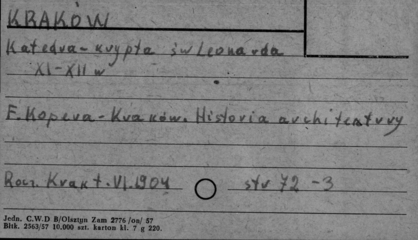 KRAKÓW
Katedra - krypta św Leonarda
XI-XII w
F. Kopera - Kraków. Historia architektury
Rocz. Krak t. VI. 1904 str 72-3
Jedn. C.W.D B/Olsztyn Zam 2776/oa/ 57
Bltk. 2563/57 10.000 szt. karton kl. 7 g 220.